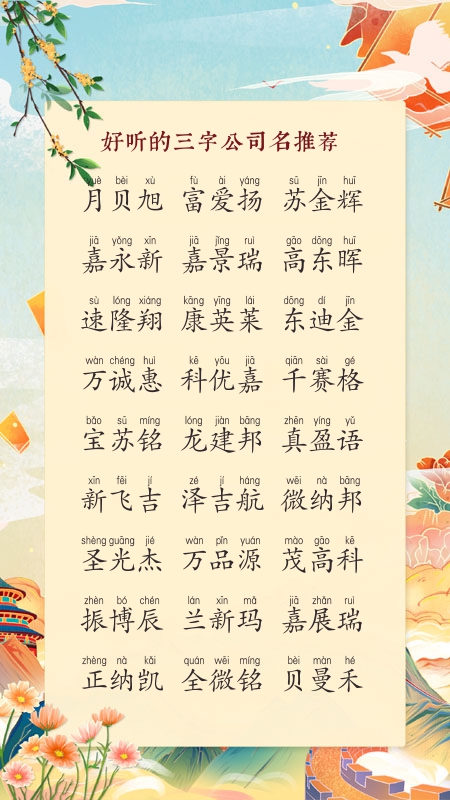 好听的三字公司名推荐
yuè bèi xù fù ài yáng sū jīn huī
月贝旭 富爱扬 苏金辉
jiā yǒng xīn jiā jǐng ruì gāo dōng huī
嘉永新 嘉景瑞 高东晖
sù lóng xiáng kāng yīng lái dōng dí jīn
速隆翔 康英莱 东迪金
wàn chéng huì kē yōu jiā qiān sài gé
万诚惠 科优嘉 千赛格
bǎo sū míng lóng jiàn bāng zhēn yíng yǔ
宝苏铭 龙建邦 真盈语
xīn fēi jí zé jí háng wēi nà bāng
新飞吉 泽吉航 微纳邦
shèng guāng jié wàn pǐn yuán mào gāo kē
圣光杰 万品源 茂高科
zhèn bó chén lán xīn mǎ jiā zhǎn ruì
振博辰 兰新玛 嘉展瑞
zhèng nà kǎi quán wēi míng bèi màn hé
正纳凯 全微铭 贝曼禾